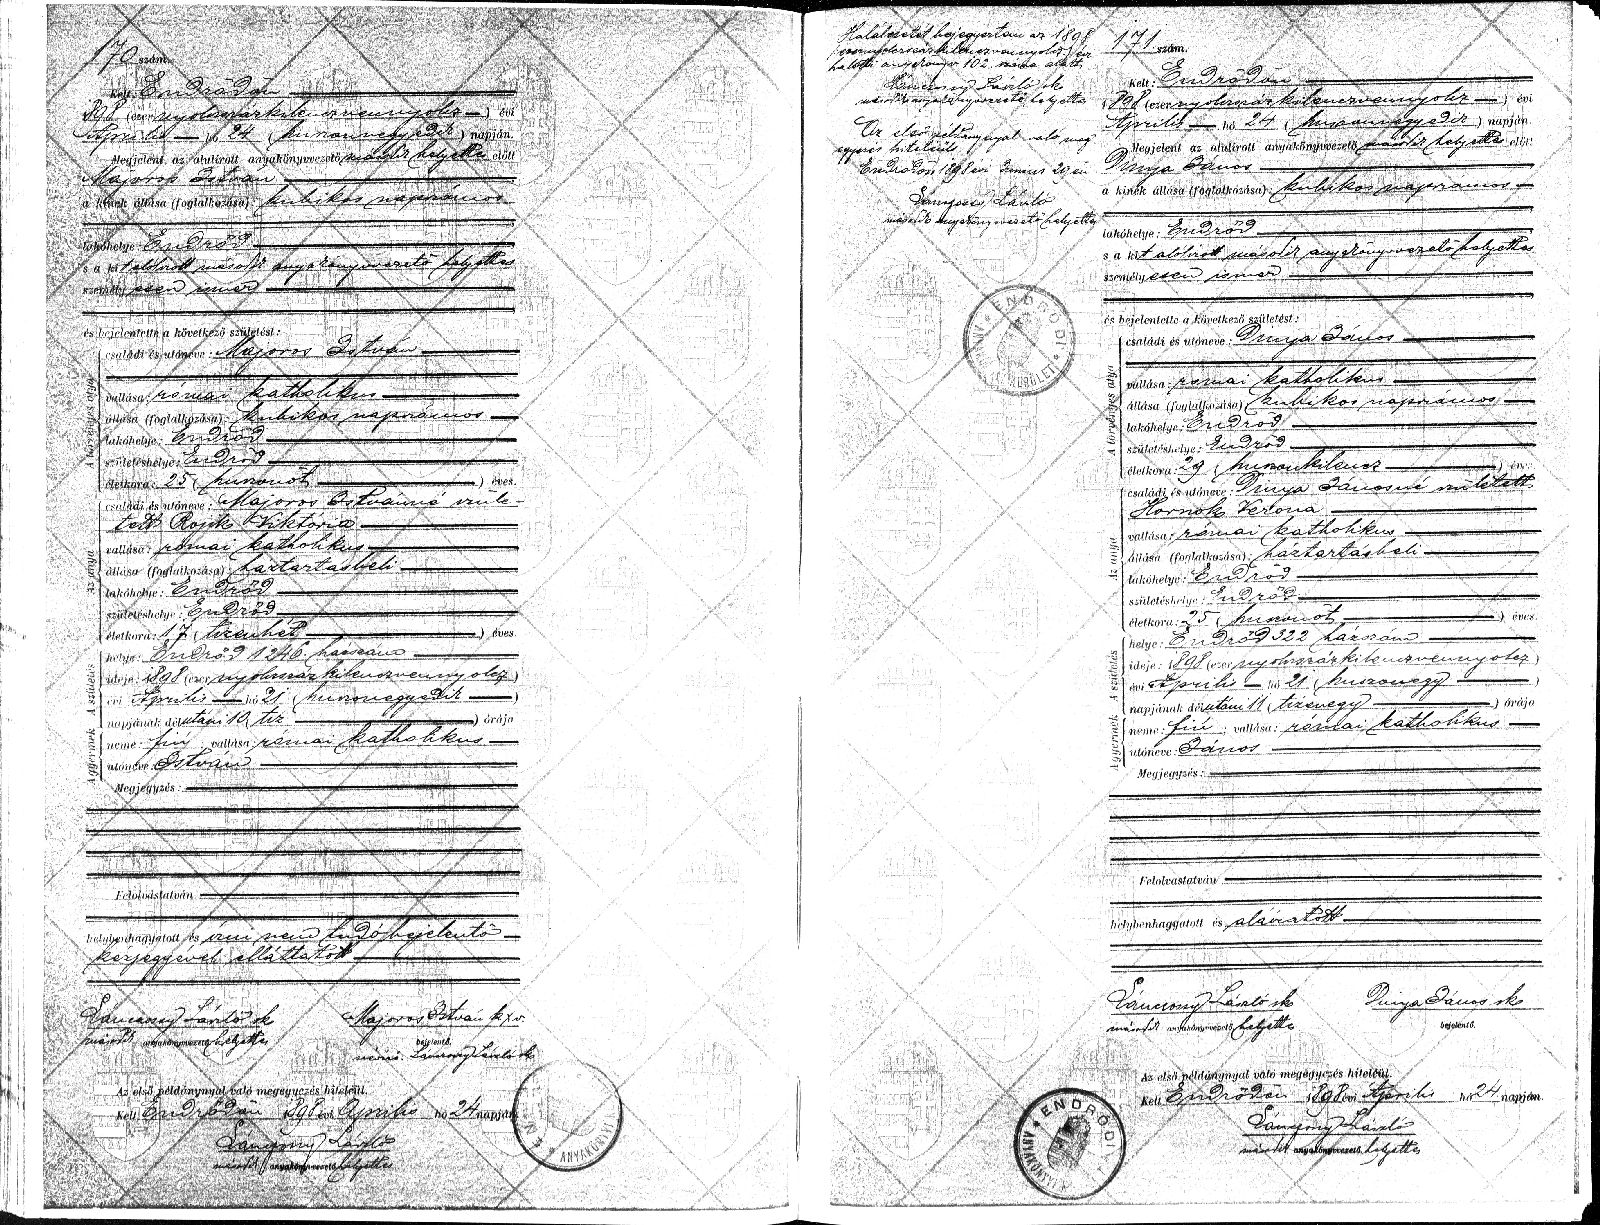 170 szám.
Kelt: Endrődön
1898 (ezernyolcszázkilenczvennyolcz) évi
Április hó 24 (huszonnegyedik) napján.
Megjelent az alulirott anyakönyvvezető második helyettes előtt
Majoros István
a kinek állása (foglalkozása): kubikos napszámos
lakóhelye: Endrőd
s a kit alólirott második anyakönyvvezető helyettes
személyesen ismer
és bejelentette a következő születést:
A törvényes atya
családi és utóneve: Majoros István
vallása: római katholikus
állása (foglalkozása): kubikos napszámos
lakóhelye: Endrőd
születéshelye: Endrőd
életkora: 25 (huszonöt) éves.
Az anya
családi és utóneve: Majoros Istvánné szüle-
tett Rojik Viktória
vallása: római katholikus
állása (foglalkozása): háztartásbeli
lakóhelye: Endrőd
születéshelye: Endrőd
életkora: 17 (tizenhét) éves.
A születés
helye: Endrőd 1246. házszám
ideje: 1898 (ezernyolcszázkilenczvennyolcz)
évi Április hó 21 (huszonegyedik)
napjának délutáni 10 (tiz) órája
A gyermek
neme: fiú, vallása: római katholikus
utóneve: István
Megjegyzés:
Felolvastatván
helybenhagyatott és irni nem tudó bejelentő
kézjegyével elláttatott
Lánczony László sk
másodk anyakönyvvezető helyettes
Majoros István kzv.
bejelentő.
Lánczony László sk
Az első példánynyal való megegyezés hiteléül.
Kelt Endrődön 1898 évi Április hó 24 napján
Lánczony László
másodk anyakönyvvezető helyettes
ANYAKÖNYVI
Halálesetét bejegyeztem az 1898
(ezernyolczszázkilenczvennyolcz) évi
halotti anyakönyv 102 száma alatt.
Lánczony László sk
másodk anyakönyvvezető helyettes
Az első példánynyal való meg
egyezés hiteléül.
Endrődön 1898 évi Junius 29 én
Lánczony László
másodk anyakönyvvezető helyettes
ENDRŐDI
171 szám.
Kelt: Endrődön
1898 (ezernyolcszázkilenczvennyolcz) évi
Április hó 24 (huszonnegyedik) napján.
Megjelent az alulirott anyakönyvvezető második helyettes előtt
Dinya János
a kinek állása (foglalkozása): kubikos napszámos
lakóhelye: Endrőd
s a kit alólirott második anyakönyvvezető helyettes
személyesen ismer
és bejelentette a következő születést:
A törvényes atya
családi és utóneve: Dinya János
vallása: római katholikus
állása (foglalkozása) kubikos napszámos
lakóhelye: Endrőd
születéshelye: Endrőd
életkora: 29 (huszonkilencz) éves.
Az anya
családi és utóneve: Dinya Jánosné született
Hornok Verona
vallása: római katholikus
állása (foglalkozása): háztartásbeli
lakóhelye: Endrőd
születéshelye: Endrőd
életkora: 25 (huszonöt) éves.
A születés
helye: Endrőd 322 házszám
ideje: 1898 (ezernyolcszázkilenczvennyolcz)
évi Április hó 21 (huszonegy)
napjának délutáni 11 (tizenegy) órája
A gyermek
neme: fiú, vallása: római katholikus
utóneve: János
Megjegyzés:
Felolvastatván
helybenhagyatott és aláiratott
Lánczony László sk
másodk anyakönyvvezető helyettes
Dinya János sk
bejelentő.
Az első példánynyal való megegyezés hiteléül.
Kelt Endrődön 1898 évi Április hó 24 napján
Lánczony László
másodk anyakönyvvezető helyettes
ENDRŐDI